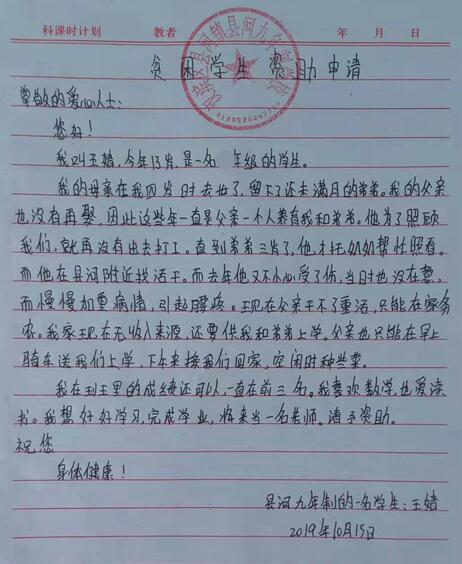 科课时计划 教者 年 月 日
贫困学生资助申请
尊敬的爱心人士:
您好!
我叫王婧,今年13岁,是一名 年级的学生。
我的母亲在我四岁时去世了,留下了还未满月的弟弟。我的父亲
也没有再娶,因此这些年一直是父亲一个人养育我和弟弟。他为了照顾
我们,就再没有出去打工。直到弟弟三岁了,他才托奶奶帮忙照看。
而他在县河附近找活干。而去年他又不小心受了伤,当时也没在意,
而慢慢加重病情,引起腰疼。现在父亲干不了重活,只能在家务
农。我家现在无收入来源,还要供我和弟弟上学。父亲也只能在早上
骑车送我们上学,下午来接我们回家,空闲时种些菜。
我在班里的成绩还可以,一直在前三名。我喜欢数学,也爱读
书。我想好好学习,完成学业,将来当一名老师。请予资助。
祝您
身体健康!
县河九年制的一名学生:王婧
2019年10月15日